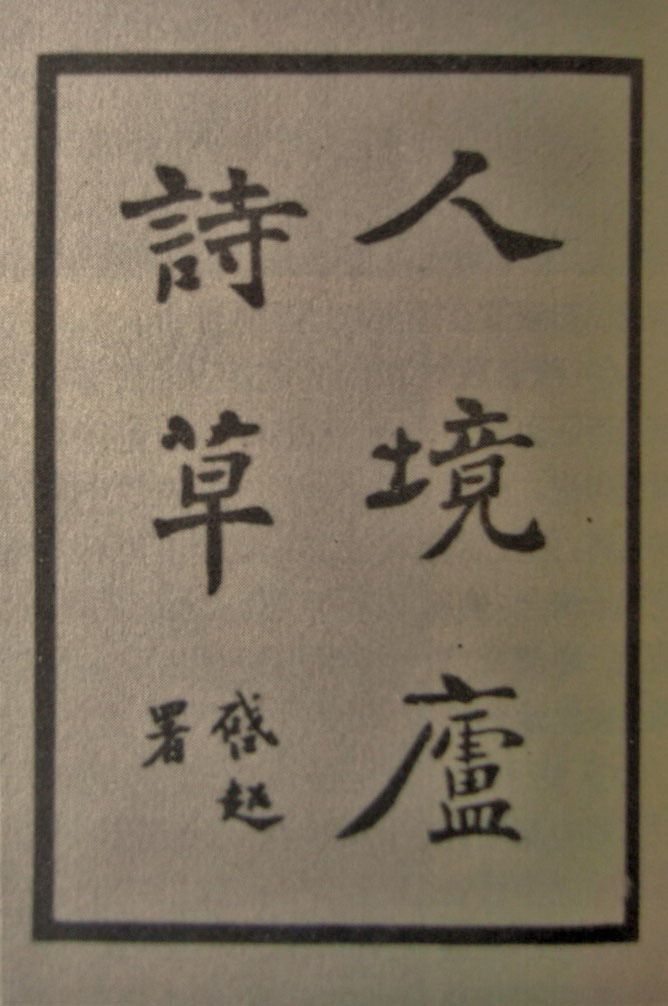 人境廬
詩草
啓超
署